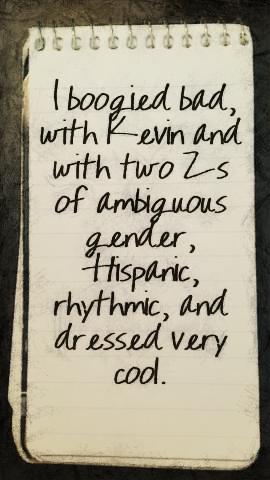 I boogied bad,
with Kevin and
with two Zs
of ambiguous
gender,
Hispanic,
rhythmic, and
dressed very
cool.